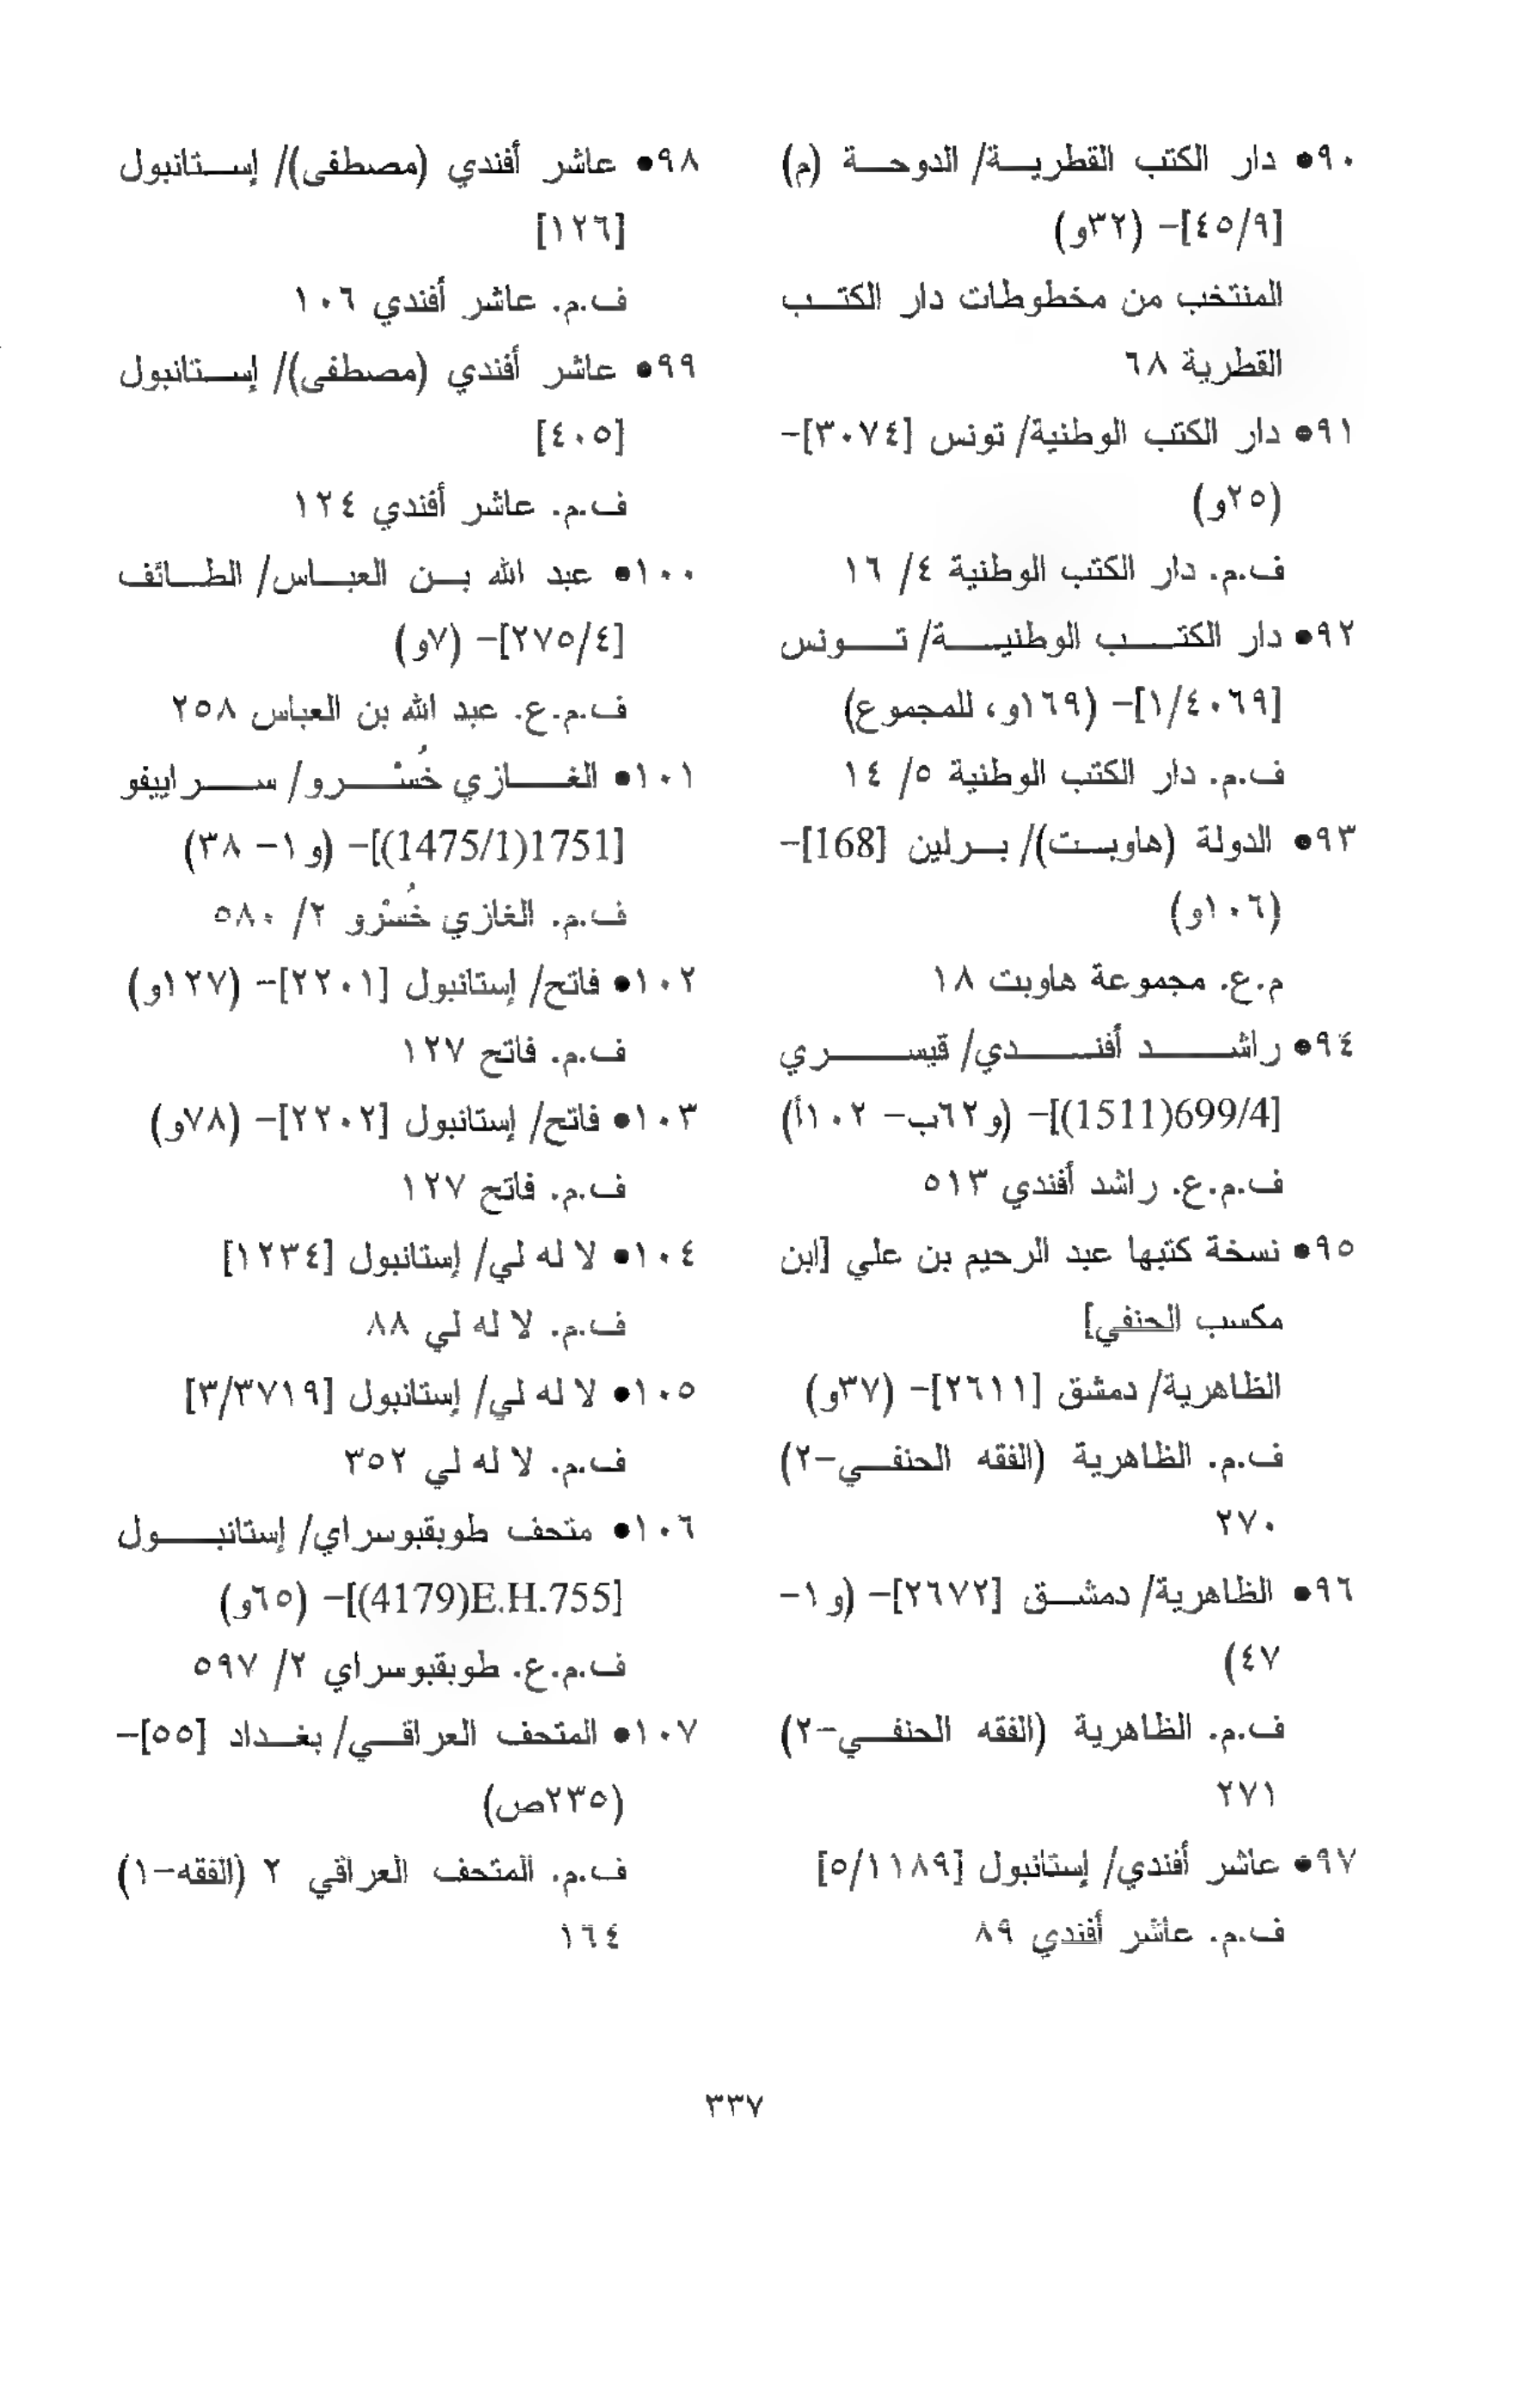 ٩٠• دار الكتب القطرية/ الدوحة (م)
[٤٥/٩]- (٣٢و)
المنتخب من مخطوطات دار الكتب
القطرية ٦٨
٩١• دار الكتب الوطنية/ تونس [٣٠٧٤]-
(٢٥و)
ف.م. دار الكتب الوطنية ٤/ ١٦
٩٢• دار الكتب الوطنية/ تونس
[١/٤٠٦٩]- (١٦٩و، للمجموع)
ف.م. دار الكتب الوطنية ٥/ ١٤
٩٣• الدولة (هاوبست)/ برلين [168]-
(١٠٦و)
م.ع. مجموعة هاوبت ١٨
٩٤• راشد أفندي/ قيسري
[699/4(1511)]- (و٦٢ب- ١٠٢أ)
ف.م.ع. راشد أفندي ٥١٣
٩٥• نسخة كتبها عبد الرحيم بن علي [ابن
مكسب الحنفي]
الظاهرية/ دمشق [٢٦١١]- (٣٧و)
ف.م. الظاهرية (الفقه الحنفي-٢)
٢٧٠
٩٦• الظاهرية/ دمشق [٢٦٧٢]- (و١-
٤٧)
ف.م. الظاهرية (الفقه الحنفي-٢)
٢٧١
٩٧• عاشر أفندي/ إستانبول [٥/١١٨٩]
ف.م. عاشر أفندي ٨٩
٩٨• عاشر أفندي (مصطفى)/ إستانبول
[١٢٦]
ف.م. عاشر أفندي ١٠٦
٩٩• عاشر أفندي (مصطفى)/ إستانبول
[٤٠٥]
ف.م. عاشر أفندي ١٢٤
١٠٠• عبد الله بن العباس/ الطائف
[٢٧٥/٤]- (٧و)
ف.م.ع. عبد الله بن العباس ٢٥٨
١٠١• الغازي خُسْرو/ سراييفو
[1751(1475/1)]- (و١- ٣٨)
ف.م. الغازي خُسْرو ٢/ ٥٨٠
١٠٢• فاتح/ إستانبول [٢٢٠١]- (١٢٧و)
ف.م. فاتح ١٢٧
١٠٣• فاتح/ إستانبول [٢٢٠٢]- (٧٨و)
ف.م. فاتح ١٢٧
١٠٤• لا له لي/ إستانبول [١٢٣٤]
ف.م. لا له لي ٨٨
١٠٥• لا له لي/ إستانبول [٣/٣٧١٩]
ف.م. لا له لي ٣٥٢
١٠٦• متحف طوبقبوسراي/ إستانبول
[E.H.755(4179)]- (٦٥و)
ف.م.ع. طوبقبوسراي ٢/ ٥٩٧
١٠٧• المتحف العراقي/ بغداد [٥٥]-
(٢٣٥ص)
ف.م. المتحف العراقي ٢ (الفقه-١)
١٦٤
٣٣٧